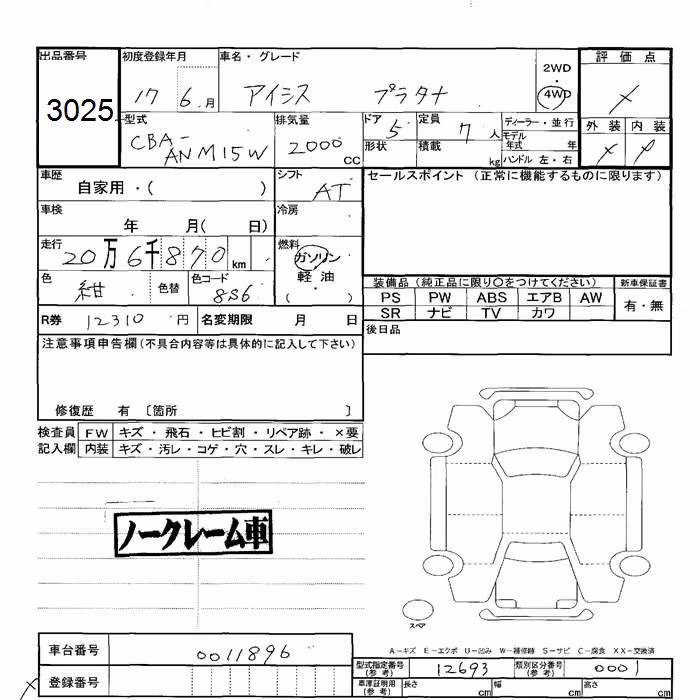 出品番号 初度登録年月 車名・グレード 2WD 評価点
3025 17 6月 アイシス プラタナ 4WD ✓
型式 排気量 ドア 定員 ディーラー・並行 外装 内装
CBA-ANM15W 2000cc 5 7人 モデル年式 年
形状 積載 kg ハンドル 左・右
車歴 自家用・( ) シフト AT セールスポイント(正常に機能するものに限ります)
車検 年 月( 日) 冷房
走行 20万6千870km 燃料 ガソリン
軽油
( )
色 紺 色替 色コード 8S6
装備品(純正品に限り〇をつけてください) 新車保証書
PS PW ABS エアB AW 有・無
SR ナビ TV カワ
R券 12310円 名変期限 月 日 後日品
注意事項申告欄(不具合内容等は具体的に記入して下さい)
修復歴 有 〔箇所 〕
検査員 FW キズ・飛石・ヒビ割・リペア跡・×要
記入欄 内装 キズ・汚レ・コゲ・穴・スレ・キレ・破レ
ノークレーム車
スペア
A-キズ E-エクボ U-凹み W-補修跡 S-サビ C-腐食 XX-交換済
車台番号 0011896
型式指定番号(参考) 12693 類別区分番号(参考) 0001
登録番号 車庫証明用(参考) 長さ cm 幅 cm 高さ cm